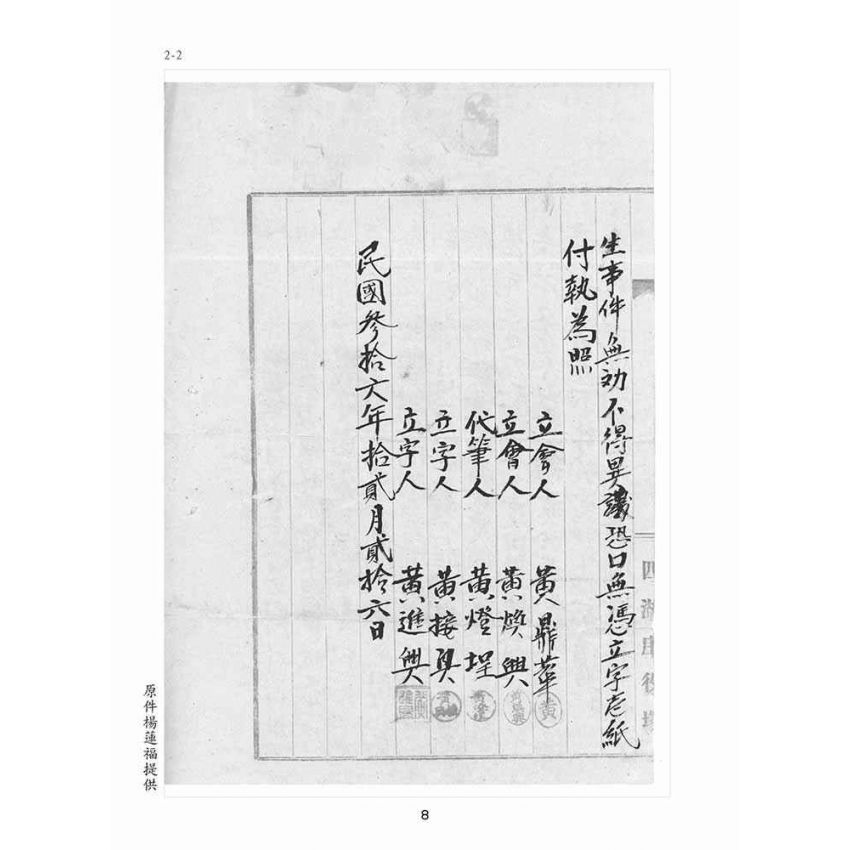 2-2
生事件無効不得異議恐口無憑立字壱紙
付執為照
立會人 黃鼎華
立會人 黃煥興
代筆人 黃燈埕
立字人 黃接其
立字人 黃進興
民國參拾六年拾貳月貳拾六日
黃
四湖庄役場
原件楊蓮福提供
8